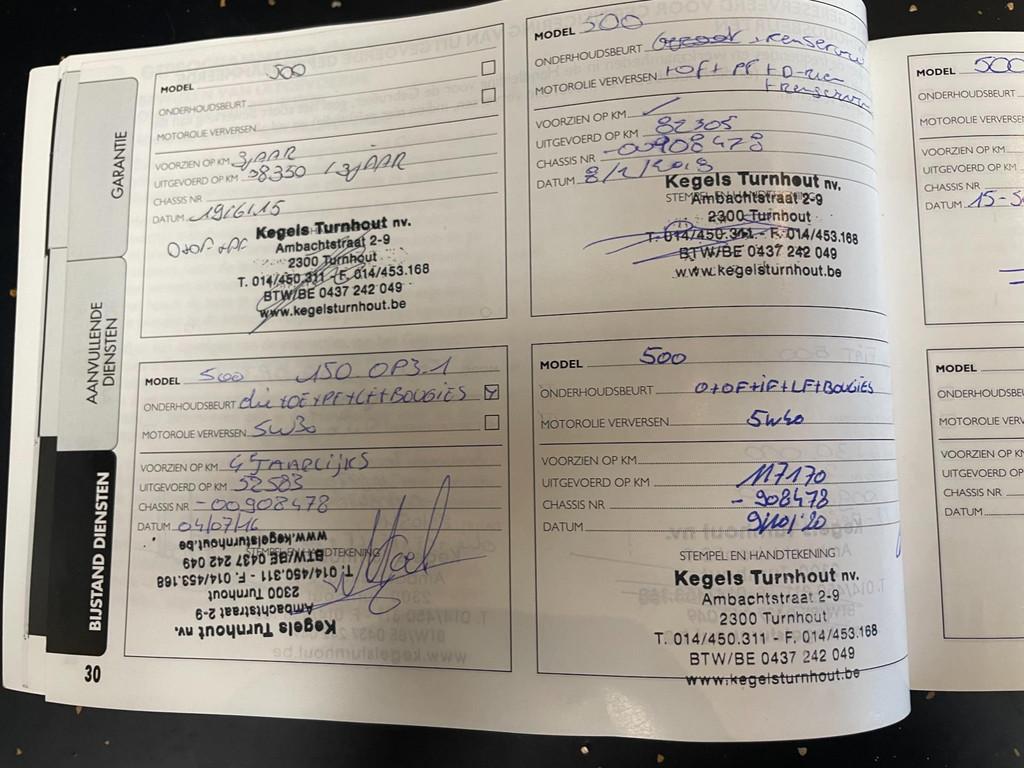 GARANTIE
AANVULLENDE
DIENSTEN
BIJSTAND DIENSTEN
30
MODEL 500
ONDERHOUDSBEURT
MOTOROLIE VERVERSEN
VOORZIEN OP KM 3 JAAR
UITGEVOERD OP KM 38330 / 3 JAAR
CHASSIS NR
DATUM 19/6/15
O+OF+PF
Kegels Turnhout nv.
Ambachtstraat 2-9
2300 Turnhout
T. 014/450.311 - F. 014/453.168
BTW/BE 0437 242 049
www.kegelsturnhout.be
MODEL 500
ONDERHOUDSBEURT
MOTOROLIE VERVERSEN +OF+ PF +
VOORZIEN OP KM
UITGEVOERD OP KM 82305
CHASSIS NR -00908478
DATUM 8/1/2018
STEMPEL EN HANDTEKENING
Kegels Turnhout nv.
Ambachtstraat 2-9
2300 Turnhout
T. 014/450.311 - F. 014/453.168
BTW/BE 0437 242 049
www.kegelsturnhout.be
MODEL 500 150 OP3.1
ONDERHOUDSBEURT +OF+PF+LF+BOUGIES
MOTOROLIE VERVERSEN 5W30
VOORZIEN OP KM 4 JAARLIJKS
UITGEVOERD OP KM 52583
CHASSIS NR -00908478
DATUM 04/07/16
STEMPEL EN HANDTEKENING
Kegels Turnhout nv.
Ambachtstraat 2-9
2300 Turnhout
T. 014/450.311 - F. 014/453.168
BTW/BE 0437 242 049
www.kegelsturnhout.be
MODEL 500
ONDERHOUDSBEURT O+OF+iF+LF+BOUGIES
MOTOROLIE VERVERSEN 5W40
VOORZIEN OP KM
UITGEVOERD OP KM 117170
CHASSIS NR - 908478
DATUM 9/10/20
STEMPEL EN HANDTEKENING
Kegels Turnhout nv.
Ambachtstraat 2-9
2300 Turnhout
T. 014/450.311 - F. 014/453.168
BTW/BE 0437 242 049
www.kegelsturnhout.be
MODEL 500
ONDERHOUDSBEURT
MOTOROLIE VERVERSEN
VOORZIEN OP KM
UITGEVOERD OP KM
CHASSIS NR
DATUM 15-
MODEL
ONDERHOUDSBE
MOTOROLIE VERV
VOORZIEN OP KM
UITGEVOERD OP
CHASSIS NR
DATUM